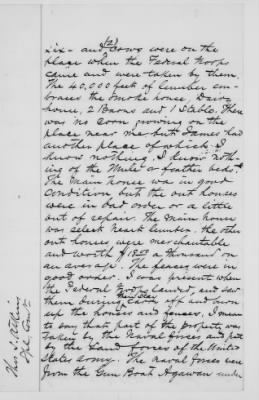 (2)
six - and Cows were on the
place when the Federal troops
came and were taken by them.
The 40,000 feet of lumber em-
braces the smoke house, Dairy
house, 2 Barns and 1 Stable. There
was no Corn growing on the
place near me but James had
another place of which I
know nothing. I know noth-
ing of the Mule or feather beds.
The Main house was in good
Condition but the out houses
were in bad order or a little
out of repair. The main house
was select heart lumber. the other
out houses were merchantable
and worth $ a thousand on
an average. The fences were in
good order. I was present when
the Federal troops landed, and saw
them during their stay off and burn
up the houses and fences. I mean
to say that part of the property was
taken by the Naval forces and part
by the Land forces of the United
States Army. The Naval forces were
from the Gun Boat Agawan under
Thos. 
Spl. Comr.